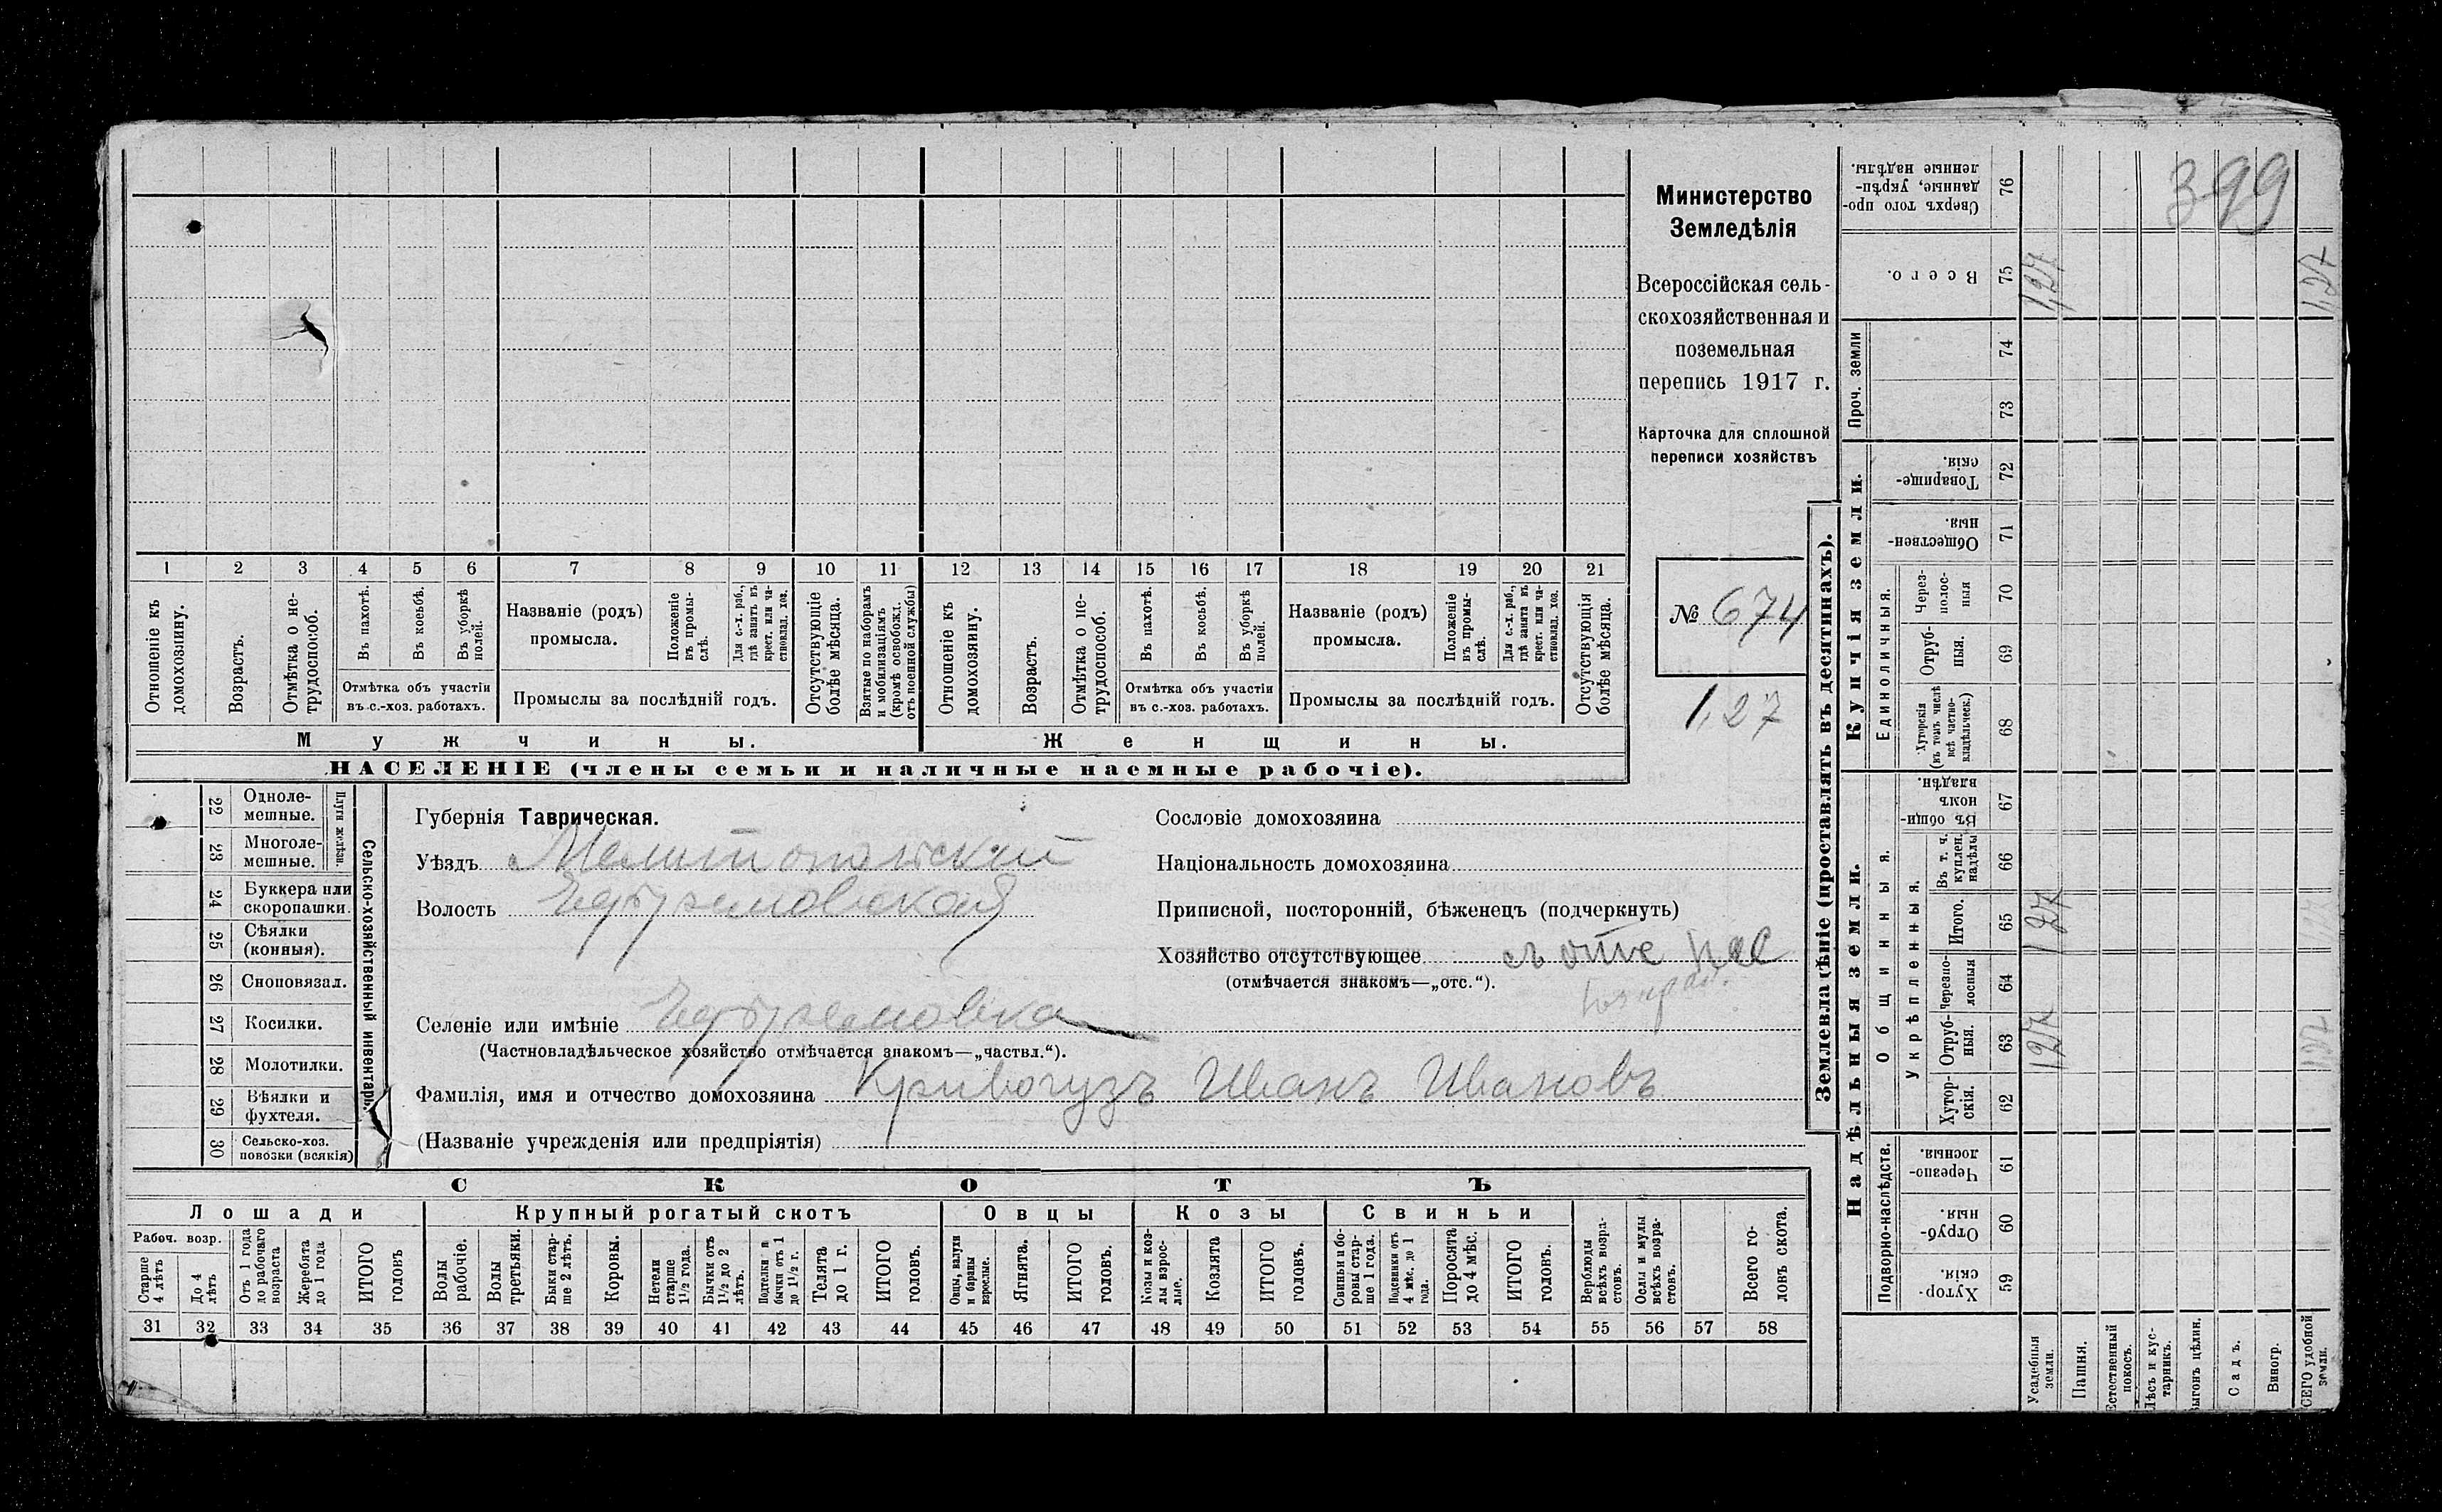 399
Министерство
Земледѣлія
Всероссійская сель-
скохозяйственная и
поземельная
перепись 1917 г.
Карточка для сплошной
переписи хозяйствъ
№ 674
1,27
1 2 3 4 5 6 7 8 9 10 11 12 13 14 15 16 17 18 19 20 21
Отношеніе къ домохозяину.
Возрастъ.
Отмѣтка о не-трудоспособ.
Въ пахотѣ.
Въ косьбѣ.
Въ уборкѣ полей.
Отмѣтка объ участіи
въ с.-хоз. работахъ.
Названіе (родъ)
промысла.
Положеніе въ промы-слѣ.
Для с.-х. раб., гдѣ занятъ въ крест. или ча-стновлад. хоз.
Промыслы за послѣдній годъ.
Отсутствующіе болѣе мѣсяца.
Взятые по наборамъ и мобилизаціямъ (кромѣ освобожд. отъ военной службы)
Отношеніе къ домохозяину.
Возрастъ.
Отмѣтка о не-трудоспособ.
Въ пахотѣ.
Въ косьбѣ.
Въ уборкѣ полей.
Отмѣтка объ участіи
въ с.-хоз. работахъ.
Названіе (родъ)
промысла.
Положеніе въ промы-слѣ.
Для с.-х. раб., гдѣ занята въ крест. или ча-стновлад. хоз.
Промыслы за послѣдній годъ.
Отсутствующія болѣе мѣсяца.
Мужчины. Женщины.
НАСЕЛЕНІЕ (члены семьи и наличные наемные рабочіе).
Сельско-хозяйственный инвентарь.
Плуги желѣзн.
22 Одноле-мешные.
23 Многоле-мешные.
24 Буккера или скоропашки.
25 Сѣялки (конныя).
26 Сноповязал.
27 Косилки.
28 Молотилки.
29 Вѣялки и фухтеля.
30 Сельско-хоз. повозки (всякія)
Губернія Таврическая.
Уѣздъ Мелитопольскій
Волость Ефремовская
Селеніе или имѣніе Ефремовка
(Частновладѣльческое хозяйство отмѣчается знакомъ—„частвл.“).
Фамилія, имя и отчество домохозяина Кривогузъ Иванъ Ивановъ
(Названіе учрежденія или предпріятія)
Сословіе домохозяина
Національность домохозяина
Приписной, посторонній, бѣженецъ (подчеркнуть)
Хозяйство отсутствующее
(отмѣчается знакомъ—„отс.“).
СКОТЪ
Лошади Крупный рогатый скотъ Овцы Козы Свиньи
Рабоч. возр.
Старше 4 лѣтъ
До 4 лѣтъ
Отъ 1 года до рабочаго возраста
Жеребята до 1 года
ИТОГО головъ
Волы рабочіе.
Волы третьяки.
Быки стар-ше 2 лѣтъ.
Коровы.
Нетели старше 1½ года.
Бычки отъ 1½ до 2 лѣтъ.
Подтелки и бычки отъ 1 до 1½ г.
Телята до 1 г.
ИТОГО головъ.
Овцы, валухи и бараны взрослые.
Ягнята.
ИТОГО головъ.
Козы и коз-лы взрос-лые.
Козлята
ИТОГО головъ.
Свиньи и бо-ровы стар-ше 1 года.
Подсвинки отъ 4 мѣс. до 1 года.
Поросята до 4 мѣс.
ИТОГО головъ.
Верблюды всѣхъ возра-стовъ.
Ослы и мулы всѣхъ возра-стовъ.
Всего го-ловъ скота.
31 32 33 34 35 36 37 38 39 40 41 42 43 44 45 46 47 48 49 50 51 52 53 54 55 56 57 58
Землевладѣніе (проставлять въ десятинахъ).
Купчія земли.
Надѣльныя земли.
Сверхъ того про-данные, укрѣп-ленные надѣлы. 76
Всего. 75 1,27 1,27
Проч. земли
74
73
Товарище-скія. 72
Обществен-ныя. 71
Единоличныя.
Через-полос-ныя 70
Отруб-ныя. 69
Хуторскія (въ томъ числѣ всѣ частно-владѣльческ.) 68
Общинныя.
Въ общи-номъ владѣн. 67
Укрѣпленныя.
Въ т. ч. куплен. надѣлы 66
Итого. 65 1 27
Черезпо-лосныя 64
Отруб-ныя. 63 127 127
Хутор-скія. 62
Подворно-наслѣдств.
Черезпо-лосныя. 61
Отруб-ныя. 60
Хутор-скія. 59
Усадебныя земли.
Пашня.
Естественный покосъ.
Лѣсъ и кус-тарникъ.
Выгонъ цѣлин.
Садъ.
Виногр.
ВСЕГО удобной земли.